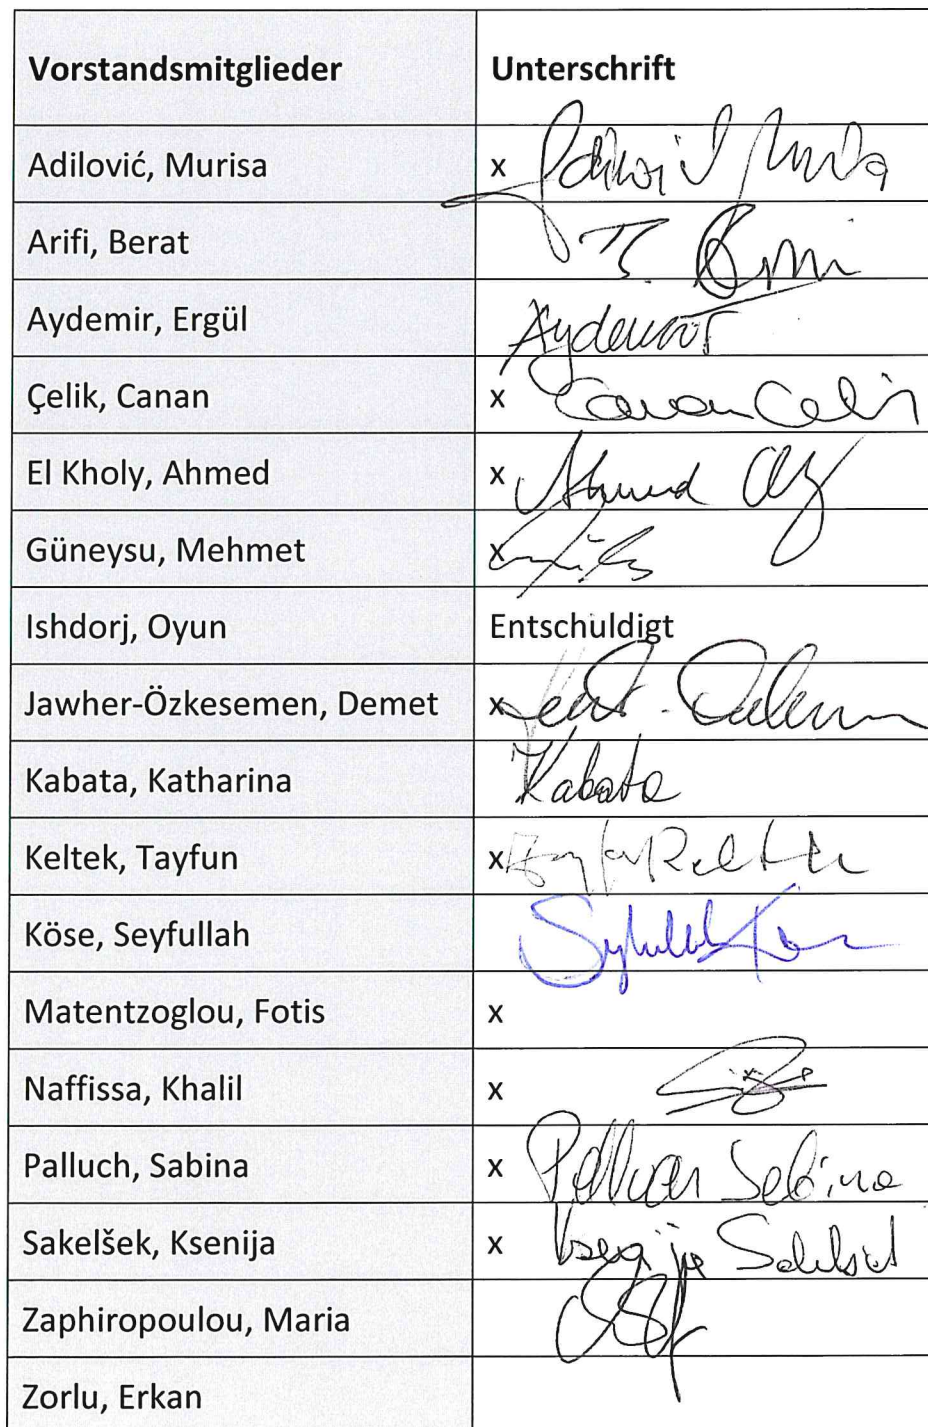 Vorstandsmitglieder Unterschrift
Adilović, Murisa x
Arifi, Berat
Aydemir, Ergül Aydemir
Çelik, Canan x Canan Celik
El Kholy, Ahmed x Ahmed
Güneysu, Mehmet x
Ishdorj, Oyun Entschuldigt
Jawher-Özkesemen, Demet x
Kabata, Katharina Kabata
Keltek, Tayfun x
Köse, Seyfullah
Matentzoglou, Fotis x
Naffissa, Khalil x
Palluch, Sabina x Palluch Sabina
Sakelšek, Ksenija x Ksenija
Zaphiropoulou, Maria
Zorlu, Erkan